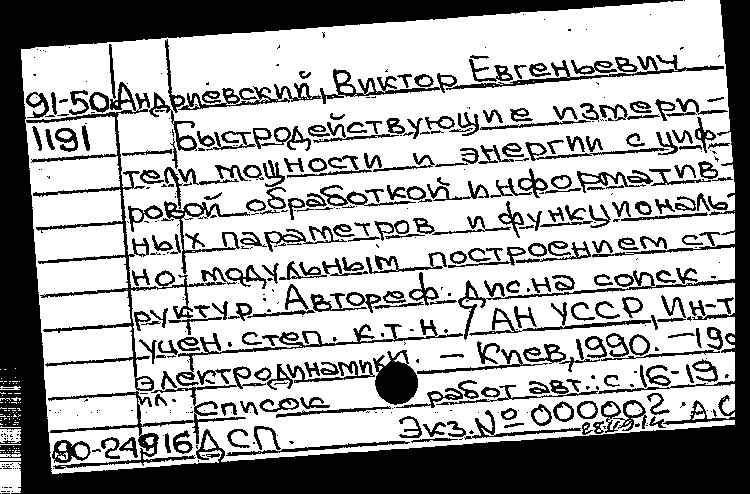 91-50 Андриевский, Виктор Евгеньевич
1191 Быстродействующие измери-
тели мощности и энергии с циф-
ровой обработкой информатив-
ных параметров и функциональ-
но-модульным построением ст-
руктур. Автореф. дис. на соиск.
учен. степ. к.т.н. / АН УССР, Ин-т
электродинамики. - Киев, 1990. - 19с
ил. список работ авт.: с. 16-19.
90-24916 ДСП. Экз. № 000002 А.С